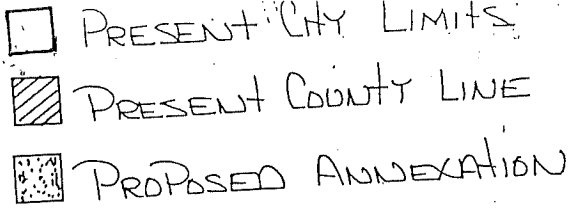 PRESENT CITY LIMITS
PRESENT COUNTY LINE
PROPOSED ANNEXATION